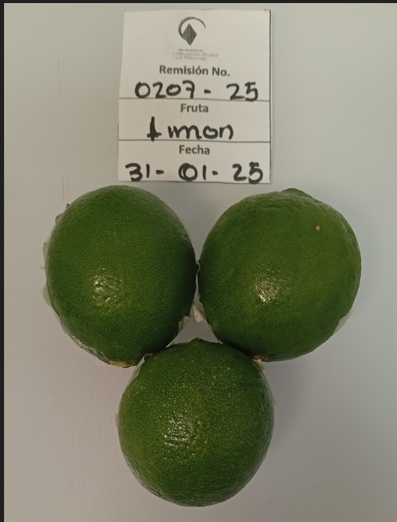 Remisión No.
0207- 25
Fruta
Limon
Fecha
31- 01- 25